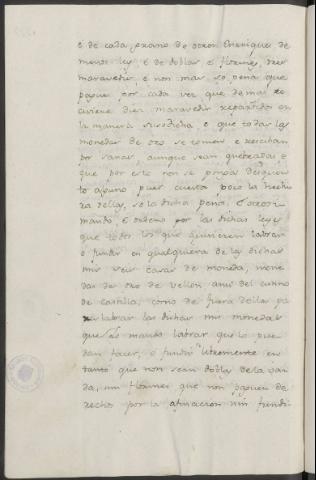 e de cada, exceso de ocron Enriques de
menos ley, e de dollar e florines, tres
maravedis, e non mas, so pena que
pague por cada vez que demas re
civiere diez maravedis repartidos en
la manera susodicha e que todas las
monedas de oro se tomen e resciban
por sanas, aunque sean quebradas e
que por esto non se ponga descuen
to alguno, pues cuesta poco la hechu
ra dellas, so la dicha pena. E otrosi
mando, e ordeno por las dichas leyes
que todos los que quisieren labrar
o fundir en qualquiera de las dichas
mis seis casas de moneda, mone
das de oro de vellon ansi del cuño
de Castilla, como de fuera dellas pa
ra labrar las dichas mis monedas
que les mando labrar que lo pue
dan facer, e fundir libremente en
tanto que non sean doblas de la van
da, nin florines que non paguen de
recho por la afinacion nin fundi